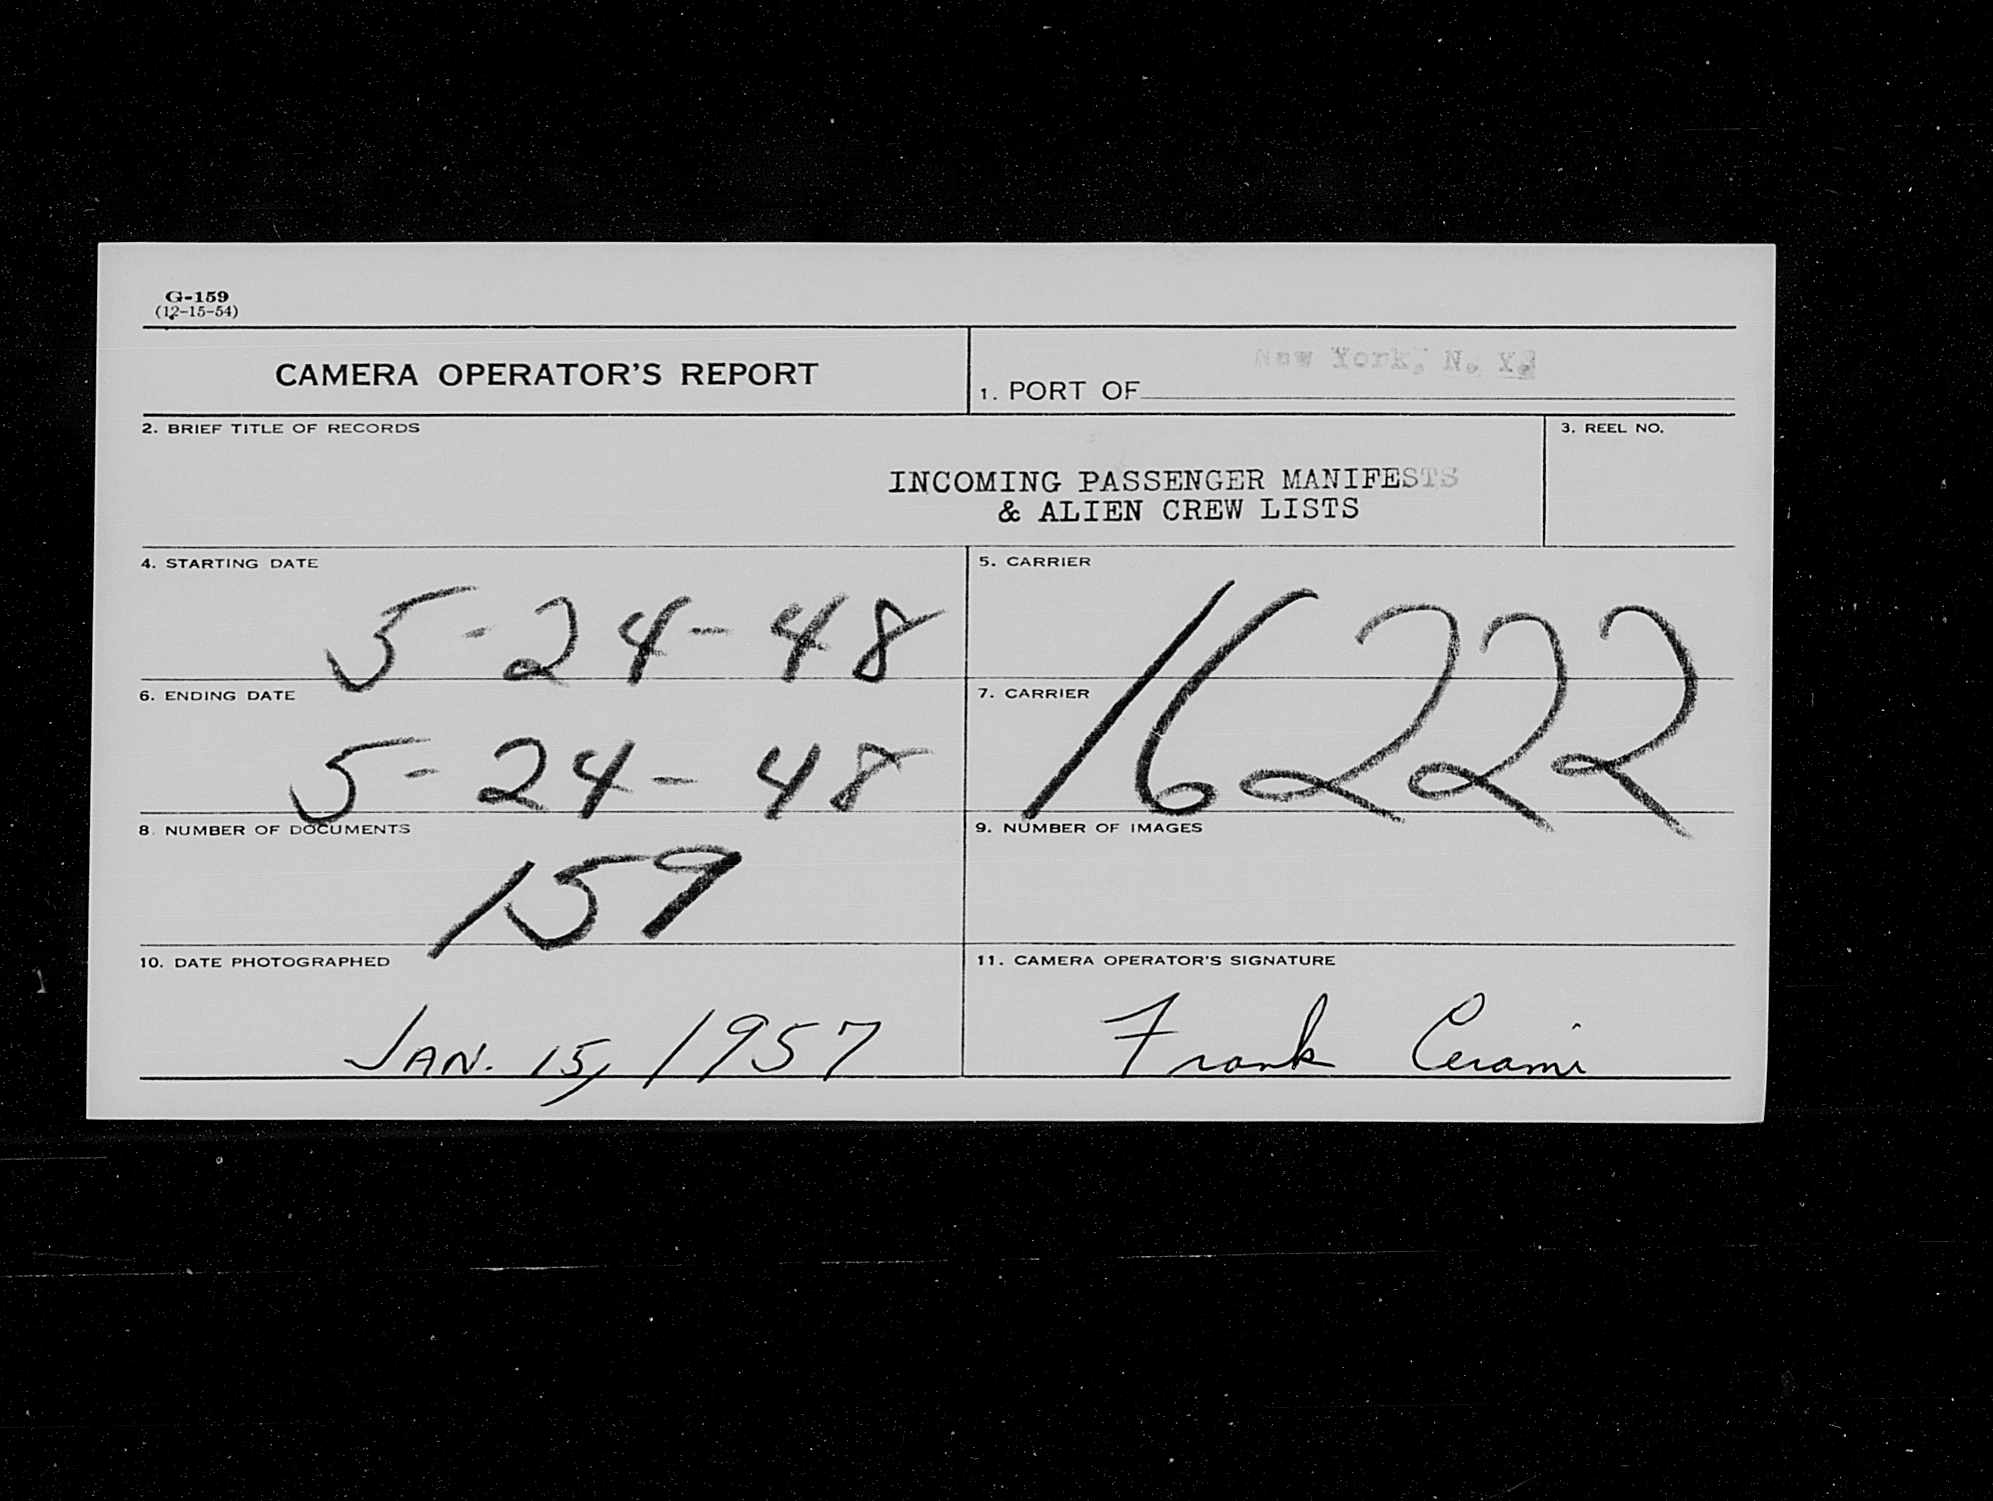 G-159
(12-15-54)
CAMERA OPERATOR'S REPORT
1. PORT OF New York, N. Y.
2. BRIEF TITLE OF RECORDS
3. REEL NO.
INCOMING PASSENGER MANIFESTS
& ALIEN CREW LISTS
4. STARTING DATE
5-24-48
5. CARRIER
16222
6. ENDING DATE
5-24-48
7. CARRIER
8. NUMBER OF DOCUMENTS
159
9. NUMBER OF IMAGES
10. DATE PHOTOGRAPHED
JAN. 15, 1957
11. CAMERA OPERATOR'S SIGNATURE
Frank Cerami